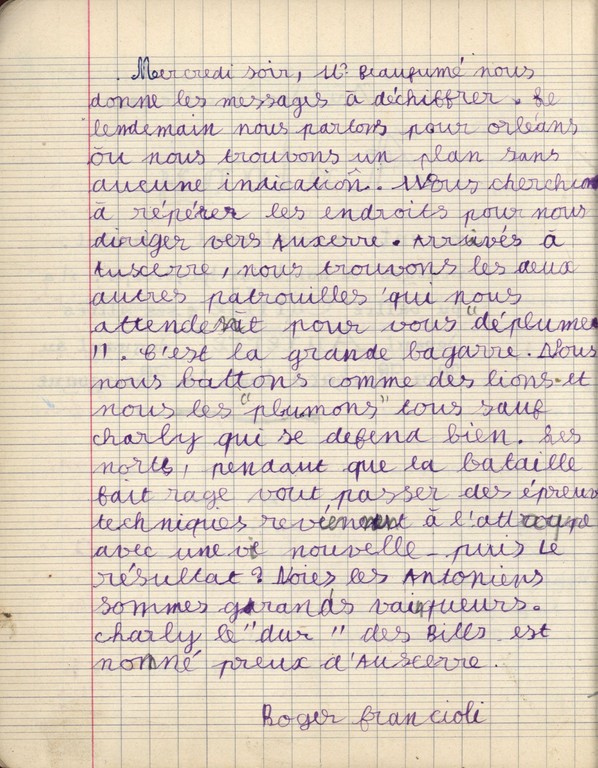 Mercredi soir, Mr Beaufumé nous
donne les messages à déchiffrer. Le
lendemain nous partons pour orléans
ōu nous trouvons un plan sans
aucune indication. Nous cherchons
à répérer les endroits pour nous
diriger vers Auxerre. Arrivés à
Auxerre, nous trouvons les deux
autres patrouilles qui nous
attendent pour vous "déplumer
". C'est la grande bagarre. Nous
nous battons comme des lions et
nous les "plumons" tous sauf
charly qui se defend bien. Les
morts, pendant que la bataille
fait rage vont passer des épreuves
techniques reviennent à l'attaque
avec une vie nouvelle - puis Le
résultat? Noies les Antoniens
sommes grands vainqueurs.
charly le "dur" des Bills est
nommé preux d'Auxerre.
Roger francioli